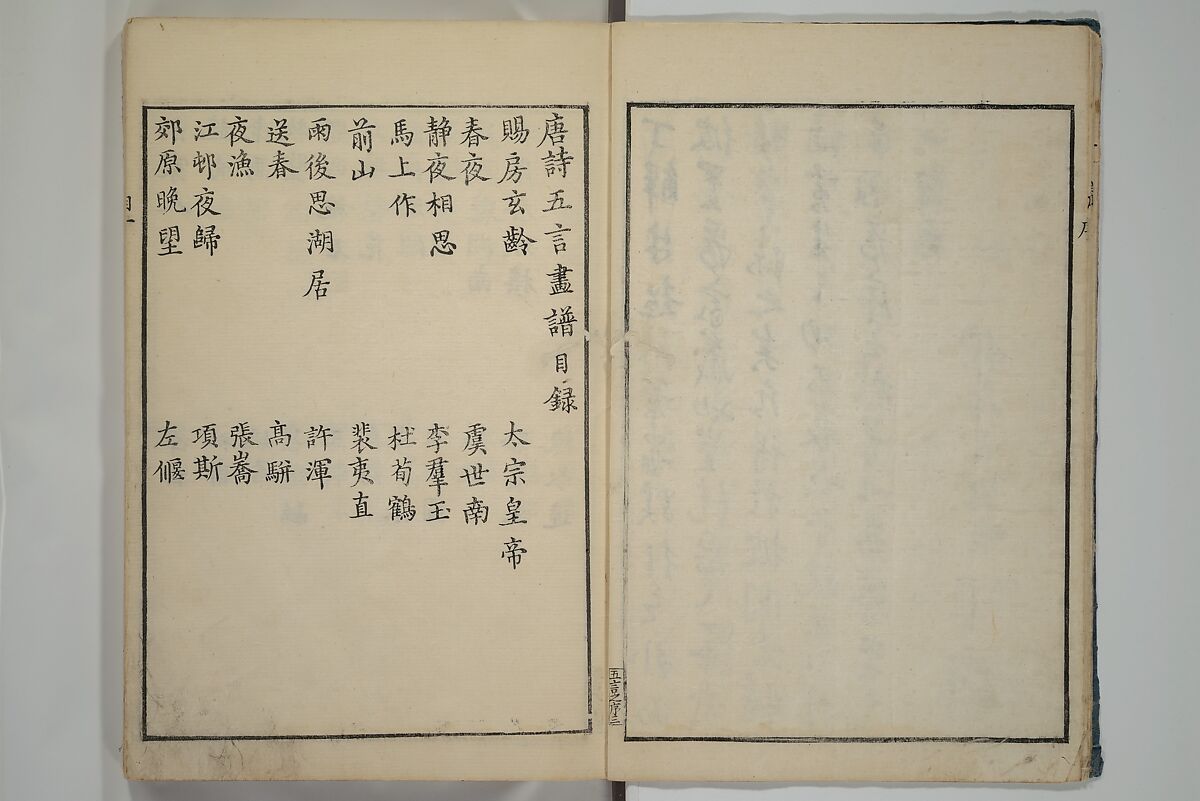 五言之序三
唐詩五言畫譜目録
賜房玄齡 太宗皇帝
春夜 虞世南
静夜相思 李羣玉
馬上作 杜荀鶴
前山 裴夷直
雨後思湖居 許渾
送春 高駢
夜漁 張喬
江邨夜歸 項斯
郊原晩望 左偃